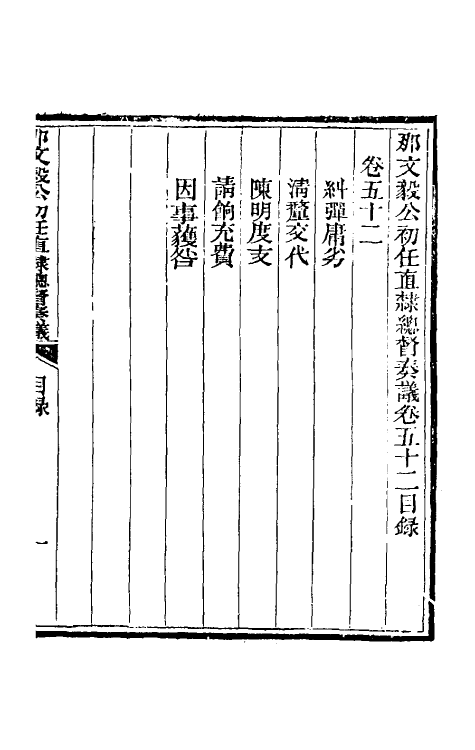 那文毅公初任直隸總督奏議卷五十二目錄
卷五十二
糾彈庸劣
清釐交代
陳明度支
請餉充費
因事獲咎
那文毅公初任直隸總督奏議
目錄
一